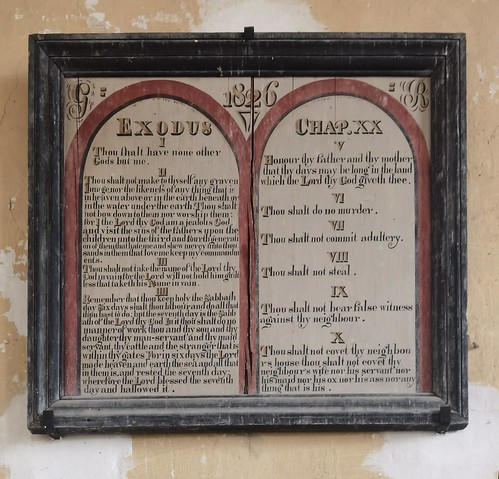 G: 1826 :R
EXODUS
I
Thou shalt have none other
Gods but me.
II
Thou shalt not make to thyself any graven
image nor the likeness of any thing that is
in heaven above, or in the earth beneath or
in the water under the earth Thou shalt
not bow down to them nor worship them:
for I the Lord thy God am a jealous God,
and visit the sins of the fathers upon the
children unto the third and Fourth generati
on of them that hate me and shew mercy unto thou
sands in them that love me keep my command
ments.
III
Thou shalt not take the name of the Lord thy
God in vain: for the Lord will not hold him guilt
less that taketh his Name in vain.
IIII
Remember that thou keep holy the Sabbath
day Six days shalt thou labour and do all that
thou hast to do; but the seventh day is the Sabb
ath of the Lord thy God In it thou shalt do no
manner of work thou and thy son and thy
daughter thy man-servant and thy maid
servant, thy cattle and the stranger that is
within thy gates For in six days the Lord
made heaven and earth the sea and all that
in them is, and rested the seventh day:
wherefore the Lord blessed the seventh
day and hallowed it.
CHAP. XX
V
Honour thy father and thy mother
that thy days may be long in the land
which the Lord thy God giveth thee.
VI
Thou shalt do no murder.
VII
Thou shalt not commit adultery.
VIII
Thou shalt not steal.
IX
Thou shalt not bear false witness
against thy neighbour.
X
Thou shalt not covet thy neighbou
rs house thou shalt not covet thy
neighbours wife nor his servant nor
his maid nor his ox nor his ass nor any
thing that is his.